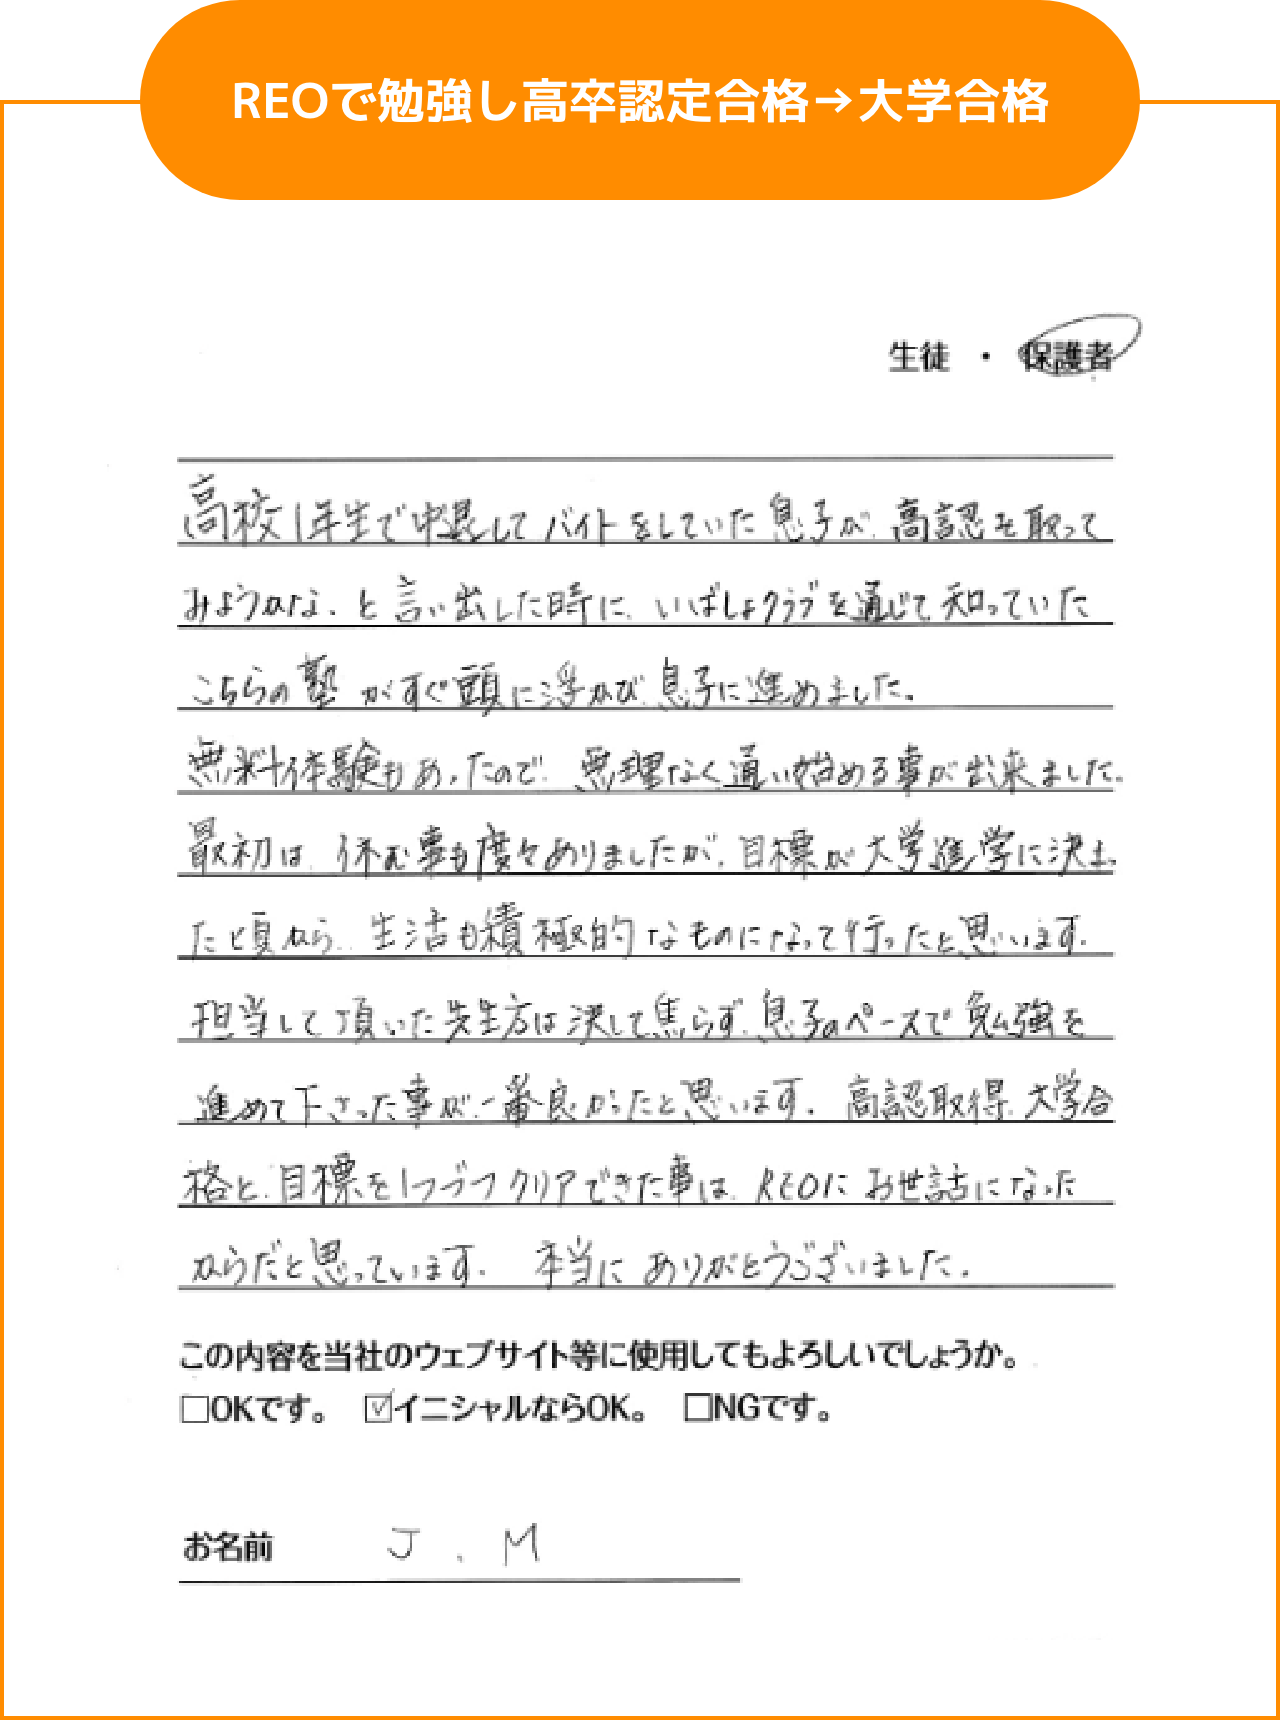 REOで勉強し高卒認定合格→大学合格
生徒 ・ 保護者
高校1年生で中退してバイトをしていた息子が、高認を取って
みようかな、と言い出した時に、いばしょクラブを通じて知っていた
こちらの塾がすぐ頭に浮かび、息子に進めました。
無料体験もあったので、無理なく通い始める事が出来ました。
最初は、休む事も度々ありましたが、目標が大学進学に決まっ
た頃から、生活も積極的なものになって行ったと思います。
担当して頂いた先生方は決して焦らず、息子のペースで勉強を
進めて下さった事が、一番良かったと思います。高認取得、大学合
格と、目標を1つづつクリアできた事は、REOにお世話になった
からだと思っています。 本当にありがとうございました。
この内容を当社のウェブサイト等に使用してもよろしいでしょうか。
□OKです。 ☑イニシャルならOK。 □NGです。
お名前 J.M